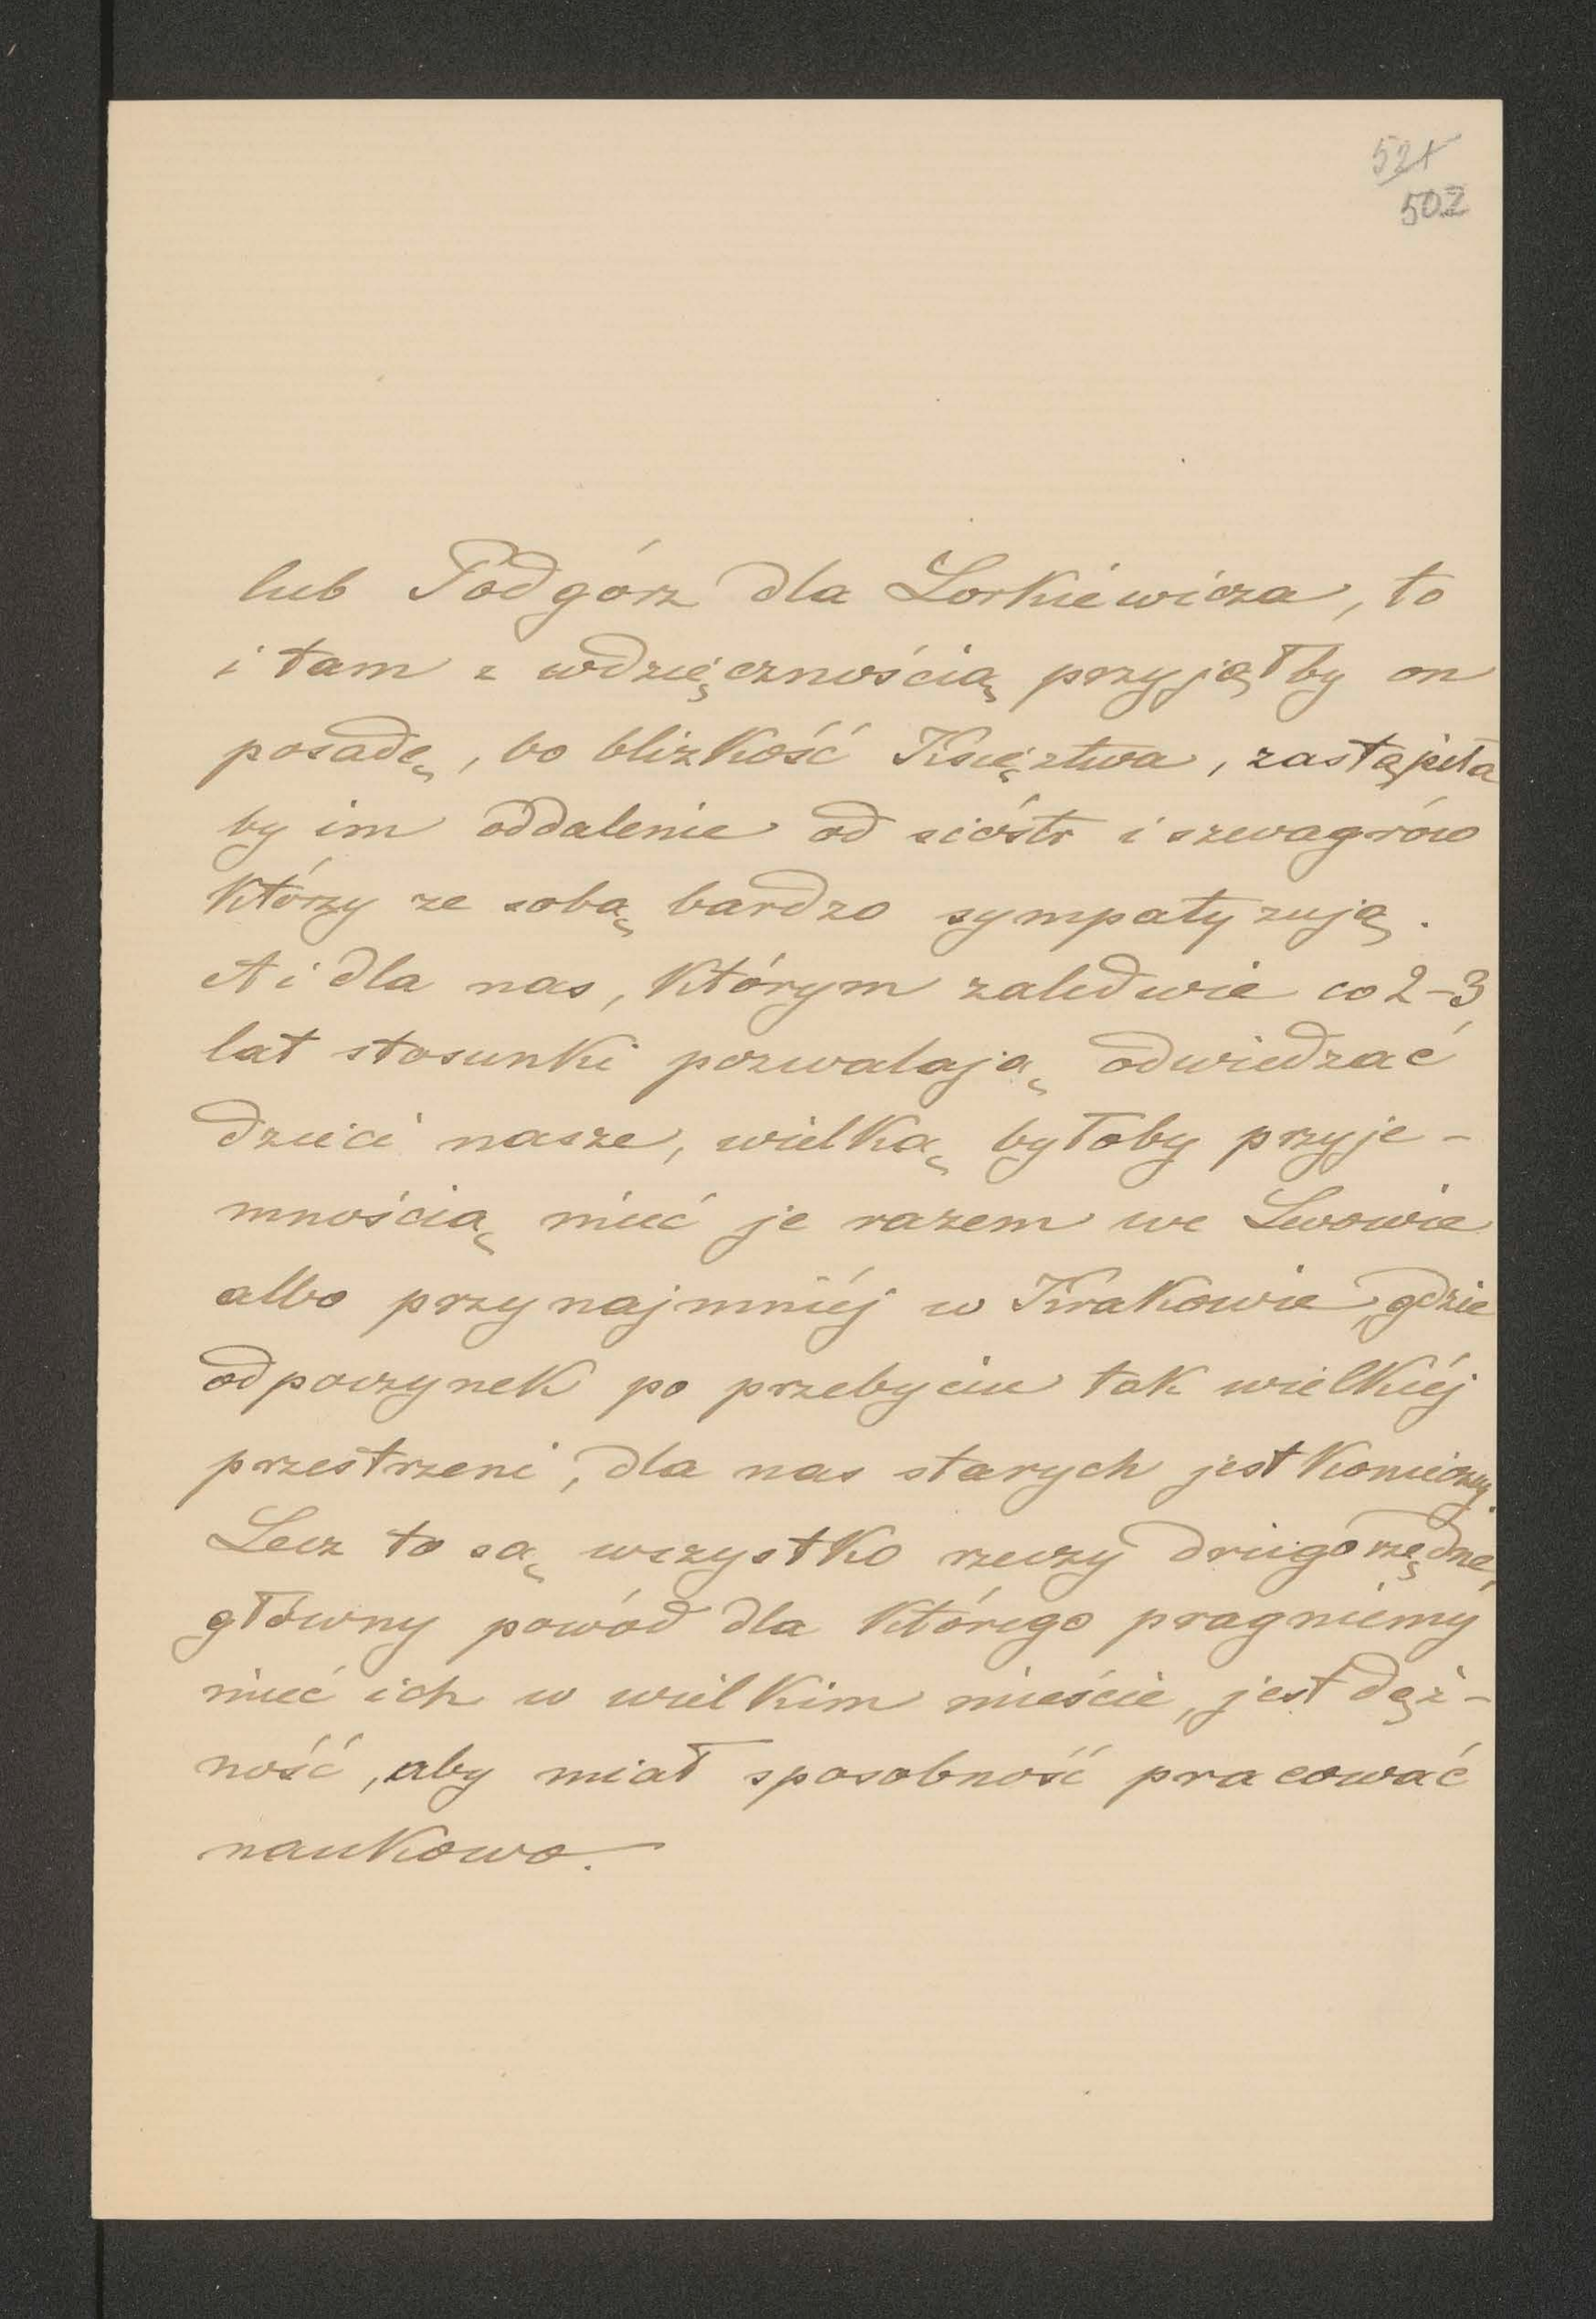 521
502
lub Podgórz dla Lorkiewicza, to
i tam z wdzięcznością przyjąłby on
posadę, bo blizkość Księztwa, zastąpiła
by im oddalenie od sióstr i szwagrów
którzy ze sobą bardzo sympatyzują.
A i dla nas, którym zaledwie co 2-3
lat stosunki pozwalają odwiedzać
dzieci nasze, wielką byłoby przyje-
mnością mieć je razem we Lwowie
albo przynajmniéj w Krakowie, gdzie
odpoczynek po przebyciu tak wielkiéj
przestrzeni, dla nas starych jest konieczny.
Lecz to są wszystko rzeczy drugorzędne,
główny powód dla którego pragniemy
mieć ich w wielkim mieście, jest dąż-
ność, aby miał sposobność pracować
naukowo.